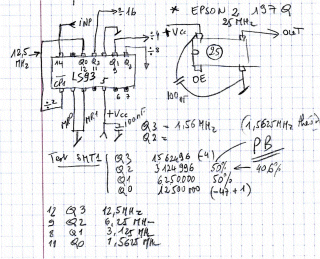 ÷16
* EPSON 2 197 Q
25 MHz
→ INP.
12,5 MHz
÷4
÷8
+Vcc
OUT
14 Q0 Q3 Q1 Q2
12 11 9 8
CP1 LS93 5
6 7
25
OE
÷2
MR MR1 +Vcc
100nF
100nF
Q3 = 1,56 MHz (1,5625 MHz
Q2 =
PB
Test SMT1 Q3 1562496 (-4)
Q2 3124996 50% ← 40,6%
Q1 6250000 50%
Q0 12500000 (-47+1)
12 Q3 12,5 MHz
9 Q2 6,25 MHz
8 Q1 3,125 MHz
11 Q0 1,5625 MHz